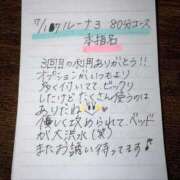 7/17 ルーナヨ 80分コース
本指名
3回目の利用ありがとう!!
オプションがいつもより
多くイ付いてて、ビックリ
したけどたくさん使うのは
ありだね
優しく攻められて、ベッド
が大洪水(笑)
またお誘い待ってます♪